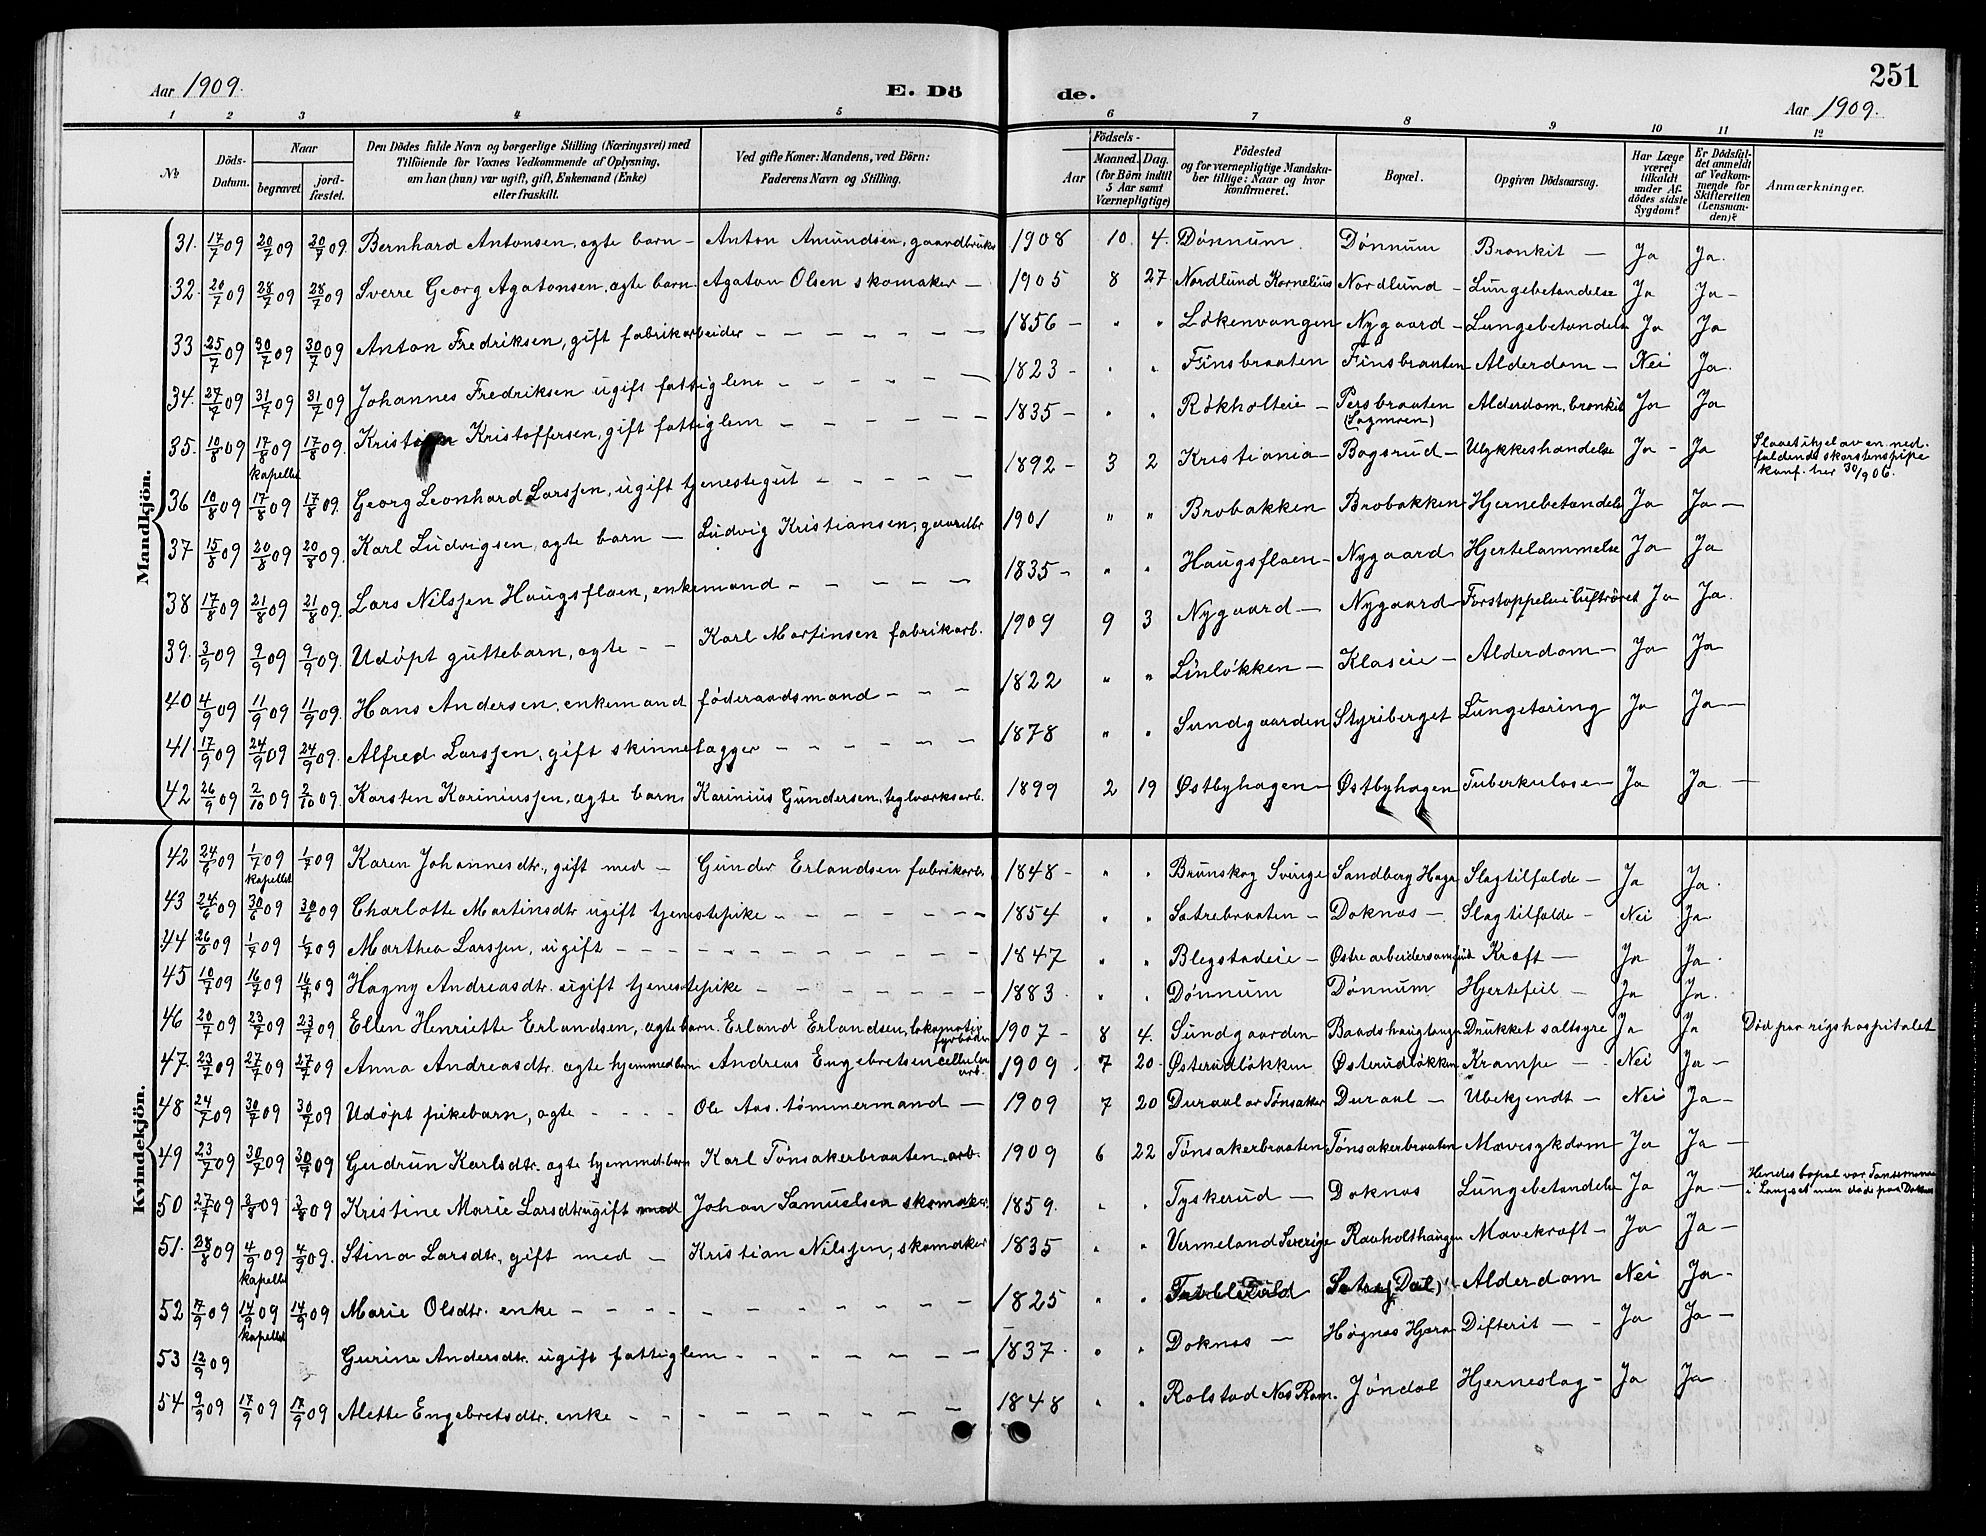 Aar 1909.
E. Dö
de.
251
Aar 1909.
1 2 3 4 5 6 7 8 9 10 11 12
No
Döds-Datum.
Naar
begravet.
jord-fæstet.
Den Dödes fulde Navn og borgerlige Stilling (Næringsvei) med
Tilföiende for Voxnes Vedkommende af Oplysning,
om han (hun) var ugift, gift, Enkemand (Enke)
eller fraskilt.
Ved gifte Koner: Mandens, ved Börn:
Faderens Navn og Stilling.
Födsels-
Aar
Maaned. Dag.
(for Börn indtil
5 Aar samt
Værnepligtige)
Födested
og for værnepligtige Mandska-
ber tillige: Naar og hvor
konfirmeret.
Bopæl.
Opgiven Dödsaarsag.
Har Læge
været
tilkaldt
under Af-
dödes sidste
Sygdom?
Er Dödsfal-
det anmeldt
af Vedkom-
mende for
Skifteretten
(Lensman-
den)?
Anmærkninger.
Mandkjön.
31. 17/7 09 20/7 09 20/7 09. Bernhard Antonsen, ægte barn – Anton Amundsen, gaardbruker 1908 10. 4. Dønnum. Dønnum Bronkit – Ja Ja.
32. 20/7 09 28/7 09 28/7 09 Sverre Georg Agatonsen, ægte barn Agaton Olsen skomaker – 1905 8 27 Nordlund Kornelius Nordlund – Lungebetændelse Ja Ja –
33 25/7 09 30/7 09 30/7 09 Anton Fredriksen, gift fabrikarbeider – – – – – – – 1856 – " " Løkenvangen Nygaard – Lungebetændelse Ja Ja
34. 27/7 09 31/7 09 31/7 09 Johannes Fredriksen ugift fattiglem – – – – – – 1823 – " " Finsbraaten Finsbraaten – Alderdom – Nei Ja.
35. 10/8 09 17/8 09 kapellet 17/8 09. Kristian Kristoffersen, gift fattiglem – – – – – – 1835 – " " Røkholteie – Persbraaten Alderdom, bronkit Ja Ja
36 10/8 09 17/8 09 17/8 09. Georg Leonhard Larssen, ugift tjenestegut – – – – – 1892 – 3 2 Kristiania – Bogsrud – Ulykkeshændelse Ja – Ja Slaaet ihjel av en ned-
faldende skorstenspipe
konf. her 30/9 06.
37 15/8 09 20/8 09 20/8 09. Karl Ludvigsen, ægte barn – Ludvig Kristiansen, gaardbr 1901 " " Brobakken Brobakken Hjernebetændelse Ja Ja –
38 17/8 09 21/8 09 21/8 09. Lars Nilssen Haugsflaen, enkemand – – – – – 1835 – " " Haugsflaen – Nygaard Hjertelammelse Ja Ja
39. 3/9 09 9/9 09 9/9 09. Udøpt guttebarn, ægte – – Karl Martinsen fabrikarb. 1909 9 3 Nygaard – Nygaard – Forstoppelse i luftrøret Ja Ja.
40 4/9 09 11/9 09 11/9 09. Hans Andersen, enkemand føderaadsmand – – – 1822 " " Linløkken – Klaseie – Alderdom – Ja Ja
41 17/9 09 24/9 09 24/9 09. Alfred Larssen, gift skinnelægger – – – – – – 1878 " " Sundgaarden Styriberget Lungetæring Ja Ja –
42 26/9 09 2/10 09 2/10 09. Karsten Kariniussen, ægte barn, Karinius Gundersen, teglværksarb. 1899 2 19 Østbyhagen – Østbyhagen Tuberkulose – Ja Ja –
Kvindekjön.
42 24/6 09 1/7 09 kapellet 1/7 09 Karen Johannesdtr., gift med – Gunder Erlandsen fabrikarb. 1848 – " " Brunskog Sverige Sandberg Haga Slagtilfælde – Ja Ja.
43 24/6 09 30/6 09 30/6 09 Charlotte Martinsdtr ugift tjenestepike – – – – – – – 1854 " " Sætrebraaten – Doknæs – Slagtilfælde – Nei Ja –
44 26/6 09 1/7 09 1/7 09 Marthea Larssen, ugift – – – – – – – – – – 1847 " " Blegstadeie – Østre arbeidersamfund Kræft – Ja Ja.
45 10/7 09 16/7 09 16/7 09 Hagny Andreasdtr. ugift tjenestepike – – – – – – – 1883. " " Dønnum Dønnum Hjertefeil – Ja Ja.
46 20/7 09 23/7 09 23/7 09. Ellen Henriette Erlandsen, ægte barn. Erland Erlandsen, lokomotiv
fyrbøder 1907 – 8 4. Sundgaarden Baadshaugtangen Drukket saltsyre Ja Ja Død paa rigshospitalet
47. 23/7 09 27/7 09 27/7 09. Anna Andreasdtr. ægte hjemmedøbt Andreas Engebretsen cellulose
arb. 1909 7 20 Østerudløkken Østerudløkken Krampe – Nei Ja –
48 24/7 09 30/7 09 30/7 09 Udøpt pikebarn, ægte – – – – Ole Aas. tømmermand – 1909 7 20 Duraal av Tønsaker Duraal – Ubekjendt – Nei Ja –
49 23/7 09 30/7 09 30/7 09 Gudrun Karlsdtr. ægte hjemmedøbt Karl Tønsakerbraaten, arb. 1909 6 22 Tønsakerbraaten Tønsakerbraaten Mavesykdom Ja Ja –
50 27/7 09 3/8 09 3/8 09 Kristine Marie Larsdtr gift med Johan Samuelsen skomaker. 1859. " " Tyskerud – Doknæs Lungebetændelse Ja Ja – Hendes bopæl var
i Langset men døde paa Doknæs
51. 28/8 09 4/9 09 kapellet 4/9 09. Stina Larsdtr, gift med – Kristian Nilssen, skomaker 1835 " " Vermeland Sverige Ravholthaugen Mavekræft – Ja Ja –
52 7/9 09 14/9 09 kapellet 14/9 09 Marie Olsdtr. enke – – – – – – – – – – 1825 " " (Dal) Alderdom Nei Ja –
53 13/9 09 Gurine Andersdtr. ugift fattiglem – – – – – – – 1837. " " Doknæs – Høgnæs Hjera Difterit – – Ja Ja –
54 9/9 09 17/9 09 17/9 09 Alette Engebretsdtr. enke – – – – – – – – – 1848 " " Rolstad Næs Rom. Jøndal Hjerneslag – Ja Ja.